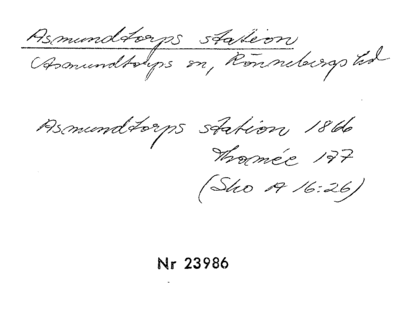 Asmundtorps station
Asmundtorps sn, Rönnebergs hd
Asmundtorps station 1866
Thomée 127
(Sko A 16:26)
Nr 23986